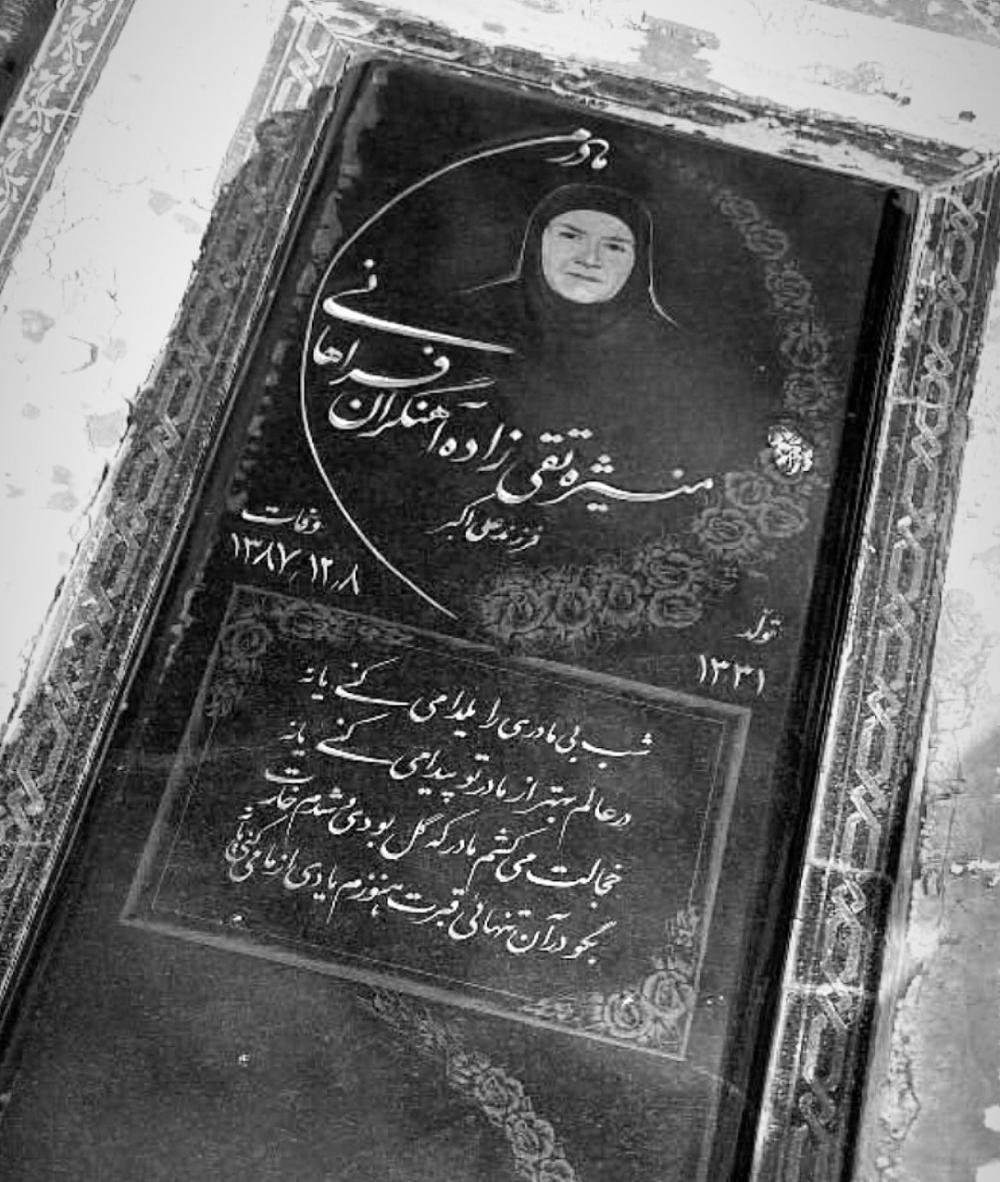 مادرم
منیژه تقی زاده آهنگران فراهانی
فرزند علی اکبر
تولد
۱۳۳۱
وفات
۱۳۸۷/۱۲/۸
شب بی مادری را یلدا می کنی یا نه
در عالم بهتر از مادر تو پیدا می کنی یا نه
خجالت می کشم مادر که گل بودی و شدم خارت
بگو در آن تنهائی قبرت هنوزم یادی از ما می کنی یا نه